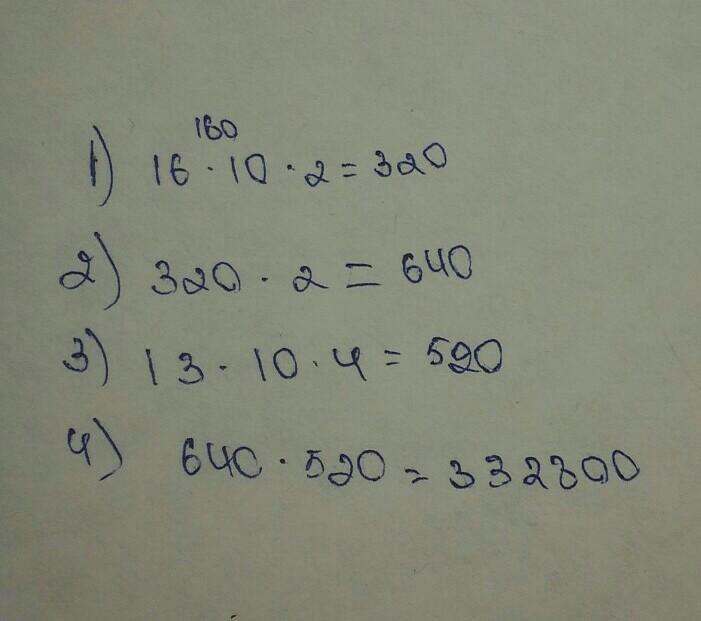 160
1) 16 · 10 · 2 = 320
2) 320 · 2 = 640
3) 13 · 10 · 4 = 520
4) 640 · 520 = 332800